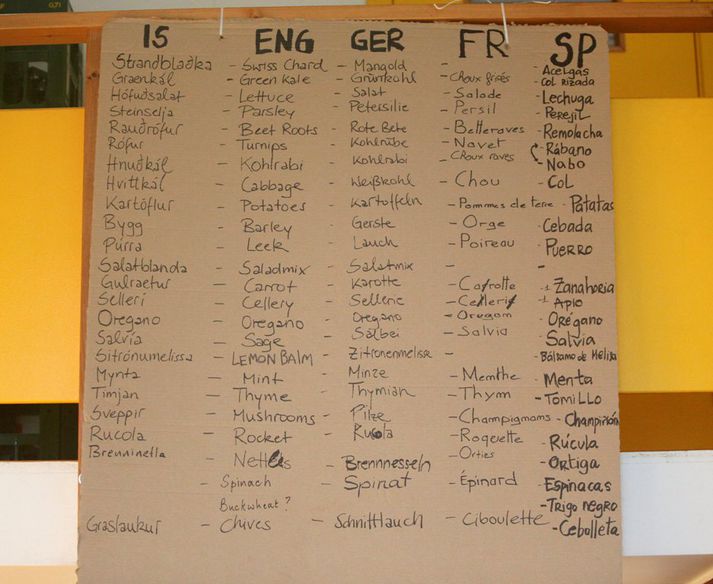 IS ENG GER FR SP
Strandblaðka - Swiss Chard - Mangold - - Acelgas
Graenkál - Green Kale - Grünkohl - Choux frisés - Col Rizada
Höfuðsalat - Lettuce - Salat - Salade - Lechuga
Steinselja - Parsley - Petersilie - Persil - Perejil
Rauðrófur - Beet Roots - Rote Bete - Betteraves - Remolacha
Rófur - Turnips - Kohlrübe - Navet - Rábano
Hnuðkál - Kohlrabi - Kohlrabi - Choux raves - Nabo
Hvittkál - Cabbage - Weißkohl - Chou - Col
Kartöflur - Potatoes - Kartoffeln - Pommes de terre - Patatas
Bygg - Barley - Gerste - Orge - Cebada
Púrra - Leek - Lauch - Poireau - Puerro
Salatblanda - Saladmix - Salatmix - -
Gulraetur - Carrot - Karotte - Carotte - Zanahoria
Selleri - Cellery - Sellerie - Celleri - Apio
Oregano - Oregano - Oregano - Oregan - Orégano
Salvía - Sage - Salbei - Salvia - Salvia
Sitrónumelissa - Lemon Balm - Zitronenmelisse - - Bálsamo de Melisa
Mynta - Mint - Minze - Menthe - Menta
Timjan - Thyme - Thymian - Thym - Tomillo
Sveppir - Mushrooms - Pilze - Champignoms - Champiñón
Rucola - Rocket - Rucola - Roquette - Rúcula
Brenninella - Nettles - Brennnesseln - Orties - Ortiga
- Spinach - Spinat - Épinard - Espinacas
Buckwheat? - Trigo negro
Graslaukur - Chives - Schnittlauch - Ciboulette - Cebolleta